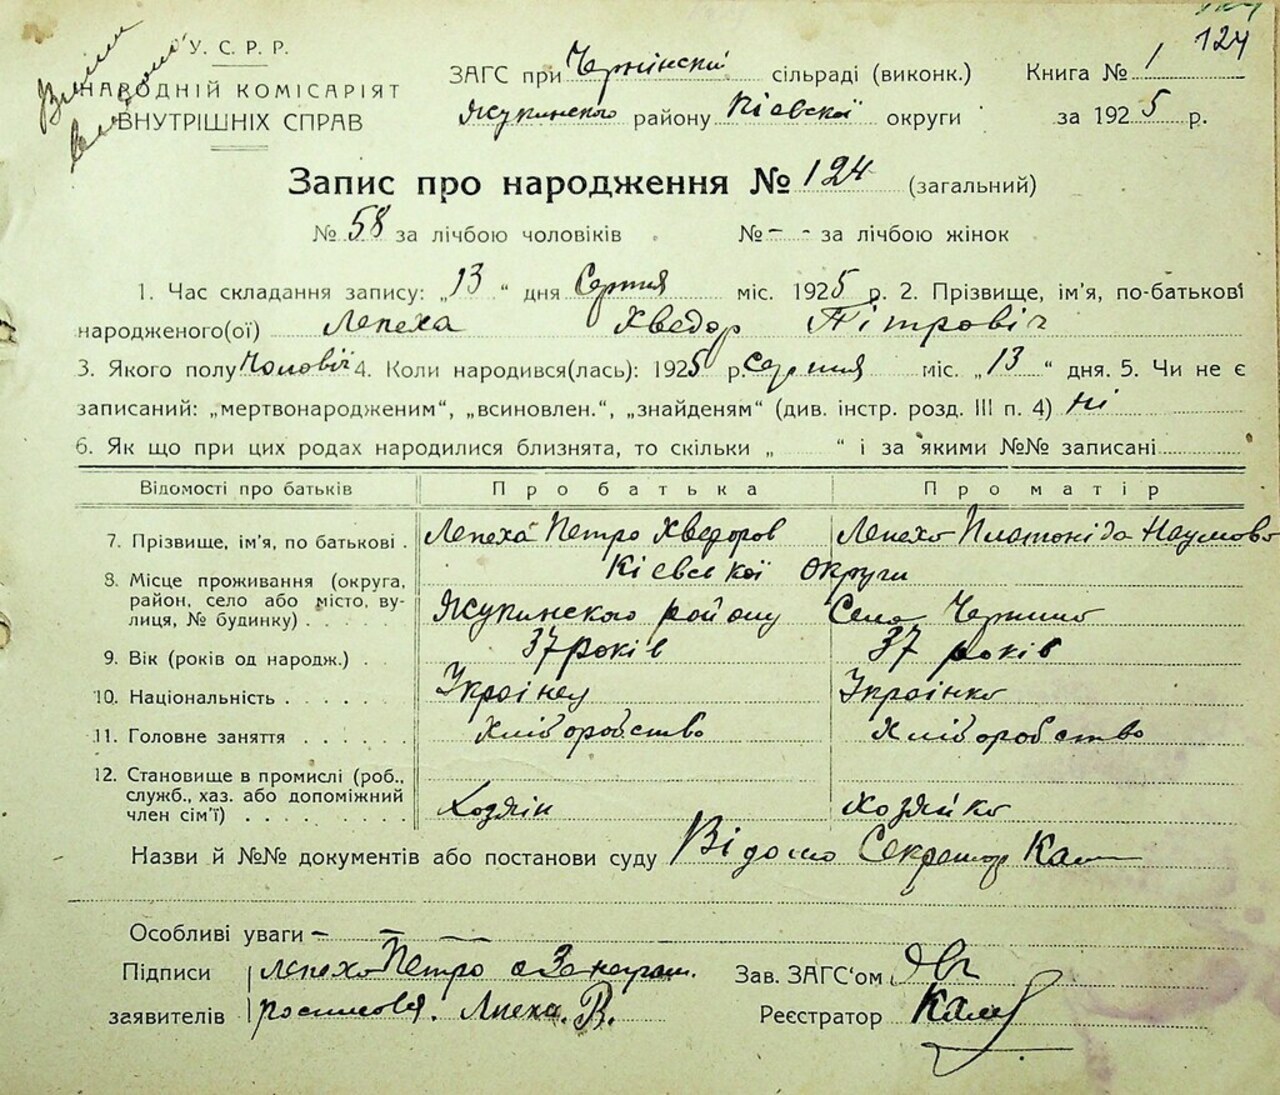 124
У. С. Р. Р.
НАРОДНІЙ КОМІСАРІЯТ
ВНУТРІШНІХ СПРАВ
ЗАГС при Чернінскій сільраді (виконк.) Книга № 1
району Кіевскої округи за 1925 р.
Запис про народження № 124 (загальний)
№ 58 за лічбою чоловіків № - - за лічбою жінок
1. Час складання запису: „13“ дня Серпня міс. 1925 р. 2. Прізвище, ім'я, по-батькові
народженого(ої) Лепеха Хведор Пітровіч
3. Якого полу Чоловіч 4. Коли народився(лась): 1925 р. Серпня міс. „13“ дня. 5. Чи не є
записаний: „мертвонародженим“, „всиновлен.“, „знайденям“ (див. інстр. розд. III п. 4) Ні
6. Як що при цих родах народилися близнята, то скільки „ “ і за якими №№ записані
Відомості про батьків Про батька Про матір
7. Прізвище, ім'я, по батькові . Лепеха Петро Хведоров Лепехо Платоніда Наумово
8. Місце проживання (округа, район, село або місто, вулиця, № будинку) . . . . . Кієвської Округи
району Село Черніно
9. Вік (років од народж.) . 37 років 37 років
10. Національність . . . . . . Украінец Украінко
11. Головне заняття . . . . . Хліборобство Хліборобство
12. Становище в промислі (роб., служб., хаз. або допоміжний член сім'ї) . . . . . . . . Хозяін Хозяйко
Назви й №№ документів або постанови суду Відомо Секретар
Особливі уваги - - —
Підписи Лепехо Петро а За неграт. Зав. ЗАГС'ом
заявителів росписовся. Лпеха. В. Реєстратор